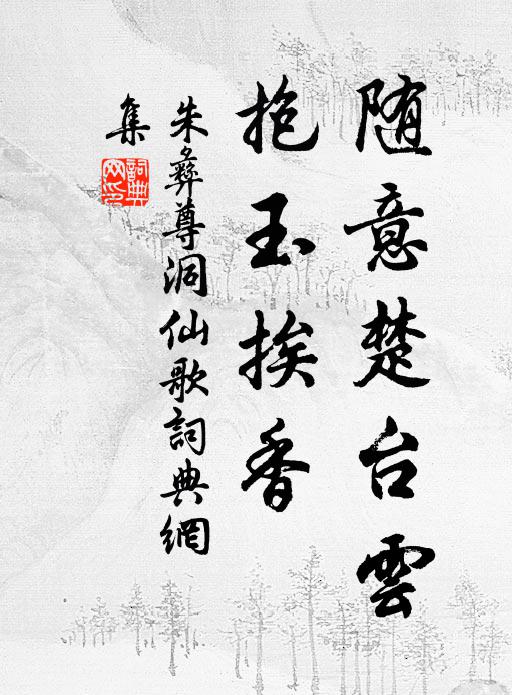 随意楚台雲
抱玉挨香
朱彝尊洞仙歌詞典網
集
詞典
网印